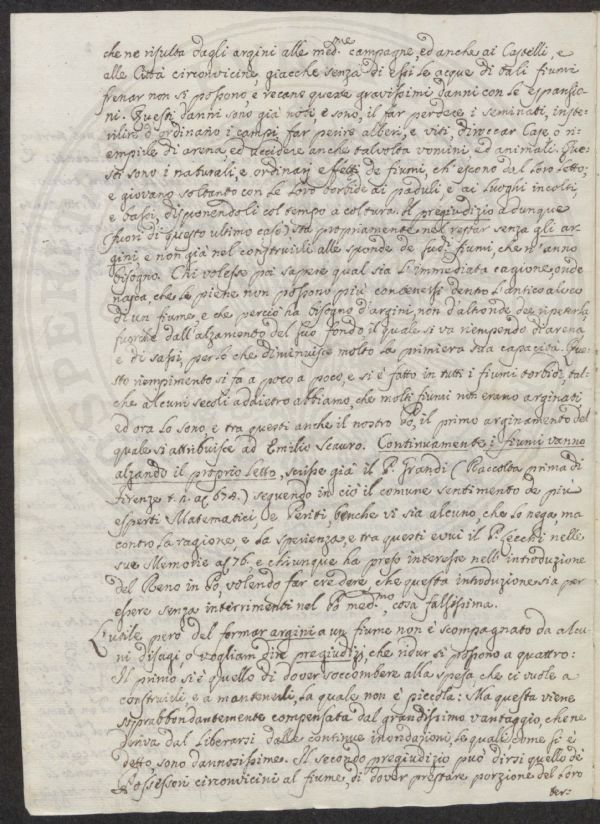 che ne risulta dagli argini alle med.me campagne, ed anche ai Castelli, e
alle Città circonvicine, giacche senza di essi le acque di tali fiumi
frenar non si possono, e recano queste gravissimi danni con le espansio-
ni. Questi danni sono già noti, e sono, il far perdere i seminati, inste-
rilire d'ordinario i campi, far perire alberi, e viti, diroccar Case, o ri-
empirle di arena ed uccidere anche talvolta uomini ed animali. Que-
sti sono i naturali, e ordinarj effetti de fiumi, ch'escono dal loro letto;
e giovano soltanto con le loro torbide ai paduli e ai luoghi incolti,
e bassi, disponendoli col tempo a coltura. Il pregiudizio adunque
(fuori di questo ultimo caso) sta propriamente nel restar senza gli ar-
gini, e non già nel construirli alle sponde de sudi fiumi, che n'anno
bisogno. Chi volesse poi sapere qual sia l'immediata cagione, onde
nasca, che le piene non possono più contenersi dentro l'antico alveo
di un fiume, e che perciò ha bisogno d'argini, non d'altronde dee ripeterla
fuorche dall'alzamento del suo fondo il quale si va riempendo di arena
e di sassi, perlo che diminuisce molto la primiera sua capacità. Que-
sto riempimento si fa a poco a poco, e si è fatto in tutti i fiumi torbidi, tal-
che alcuni secoli addietro abbiamo, che molti fiumi non erano arginati
ed ora lo sono, e tra questi anche il nostro Pò, il primo arginamento del
quale si attribuisce ad Emilio Scauro. Continuamente i fiumi vanno
alzando il proprio letto, scrisse già il P. Grandi (Raccolta prima di
Firenze t. 2. ac 674.) seguendo in ciò il comune sentimento de più
esperti Matematici, e Periti, benche vi sia alcuno, che lo nega, ma
contro la ragione, e la sperienza, e tra questi evvi il P. Lecchi nelle
sue Memorie ac 76. e chiunque ha preso interesse nell'introduzione
del Reno in Pò, volendo far credere che questa introduzione sia per
essere senza interrimenti nel Pò med.mo, cosa falsissima.
L'utile però del formar argini a un fiume non è scompagnato da alcu-
ni disagi o vogliam dire pregiudizj, che ridur si possono a quattro:
Il primo si è quello di dover soccombere alla spesa, che ci vuole a
construirli e a mantenerli, la quale non è piccola: Ma questa viene
soprabbondantemente compensata dal grandissimo vantaggio, che ne
deriva dal liberarsi dalle continue inondazioni, le quali come si è
detto, sono dannosissime. Il secondo pregiudizio può dirsi quello de
Possessori circonvicini al fiume, di dover prestare porzione del loro
ter-